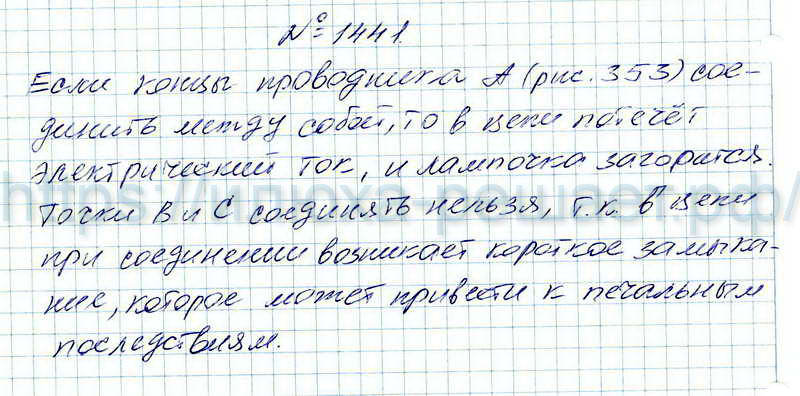 № 1441.
Если концы проводника А (рис. 353) сое-
динить между собой, то в цепи потечёт
электрический ток, и лампочка загоратся.
Точки В и С соединять нельзя, т.к. в цепи
при соединении возникает короткое замыка-
ние, которое может привести к печальным
последствиям.